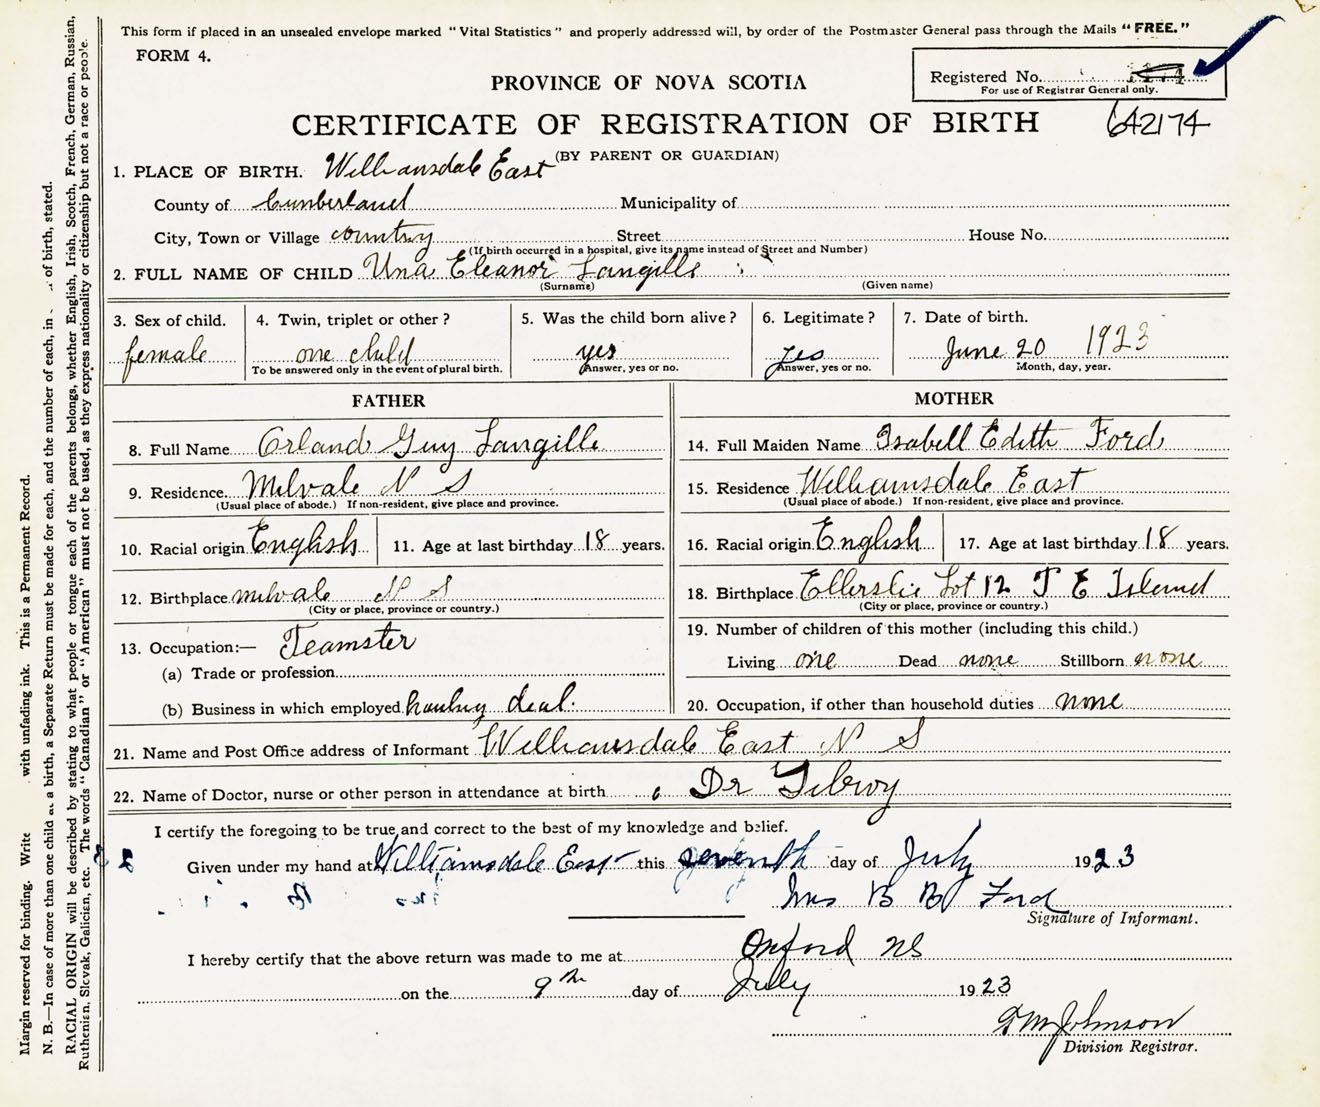 This form if placed in an unsealed envelope marked "Vital Statistics" and properly addressed will, by order of the Postmaster General pass through the Mails "FREE."
FORM 4.
PROVINCE OF NOVA SCOTIA
Registered No.
For use of Registrar General only.
CERTIFICATE OF REGISTRATION OF BIRTH
642174
(BY PARENT OR GUARDIAN)
1. PLACE OF BIRTH. Williamsdale East
County of Cumberland Municipality of
City, Town or Village country Street House No.
(If birth occurred in a hospital, give its name instead of Street and Number)
2. FULL NAME OF CHILD Una Eleanor Langille
(Surname) (Given name)
3. Sex of child. 4. Twin, triplet or other? 5. Was the child born alive? 6. Legitimate? 7. Date of birth.
female one child yes yes June 20 1923
To be answered only in the event of plural birth. Answer, yes or no. Answer, yes or no. Month, day, year.
FATHER MOTHER
8. Full Name Orland Guy Langille 14. Full Maiden Name Isabell Edith Ford
9. Residence Milvale N S 15. Residence Williamsdale East
(Usual place of abode.) If non-resident, give place and province. (Usual place of abode.) If non-resident, give place and province.
10. Racial origin English 11. Age at last birthday 18 years. 16. Racial origin English 17. Age at last birthday 18 years.
12. Birthplace milvale N S 18. Birthplace Ellerslie Lot 12 P E Island
(City or place, province or country.) (City or place, province or country.)
13. Occupation:— Teamster 19. Number of children of this mother (including this child.)
(a) Trade or profession Living one Dead none Stillborn none
(b) Business in which employed hauling deal. 20. Occupation, if other than household duties none
21. Name and Post Office address of Informant Williamsdale East N S
22. Name of Doctor, nurse or other person in attendance at birth Dr Gilroy
I certify the foregoing to be true and correct to the best of my knowledge and belief.
Given under my hand at Williamsdale East this seventh day of July 1923
Mrs B B Ford
Signature of Informant.
I hereby certify that the above return was made to me at Oxford NS
on the 9th day of July 1923
Johnson
Division Registrar.
Margin reserved for binding. Write with unfading ink. This is a Permanent Record.
N. B.—In case of more than one child at a birth, a Separate Return must be made for each, and the number of each, in of birth, stated.
RACIAL ORIGIN will be described by stating to what people or tongue each of the parents belongs, whether English, Irish, Scotch, French, German, Russian,
Ruthenian, Slovak, Galician, etc. The words "Canadian" or "American" must not be used, as they express nationality or citizenship but not a race or people.